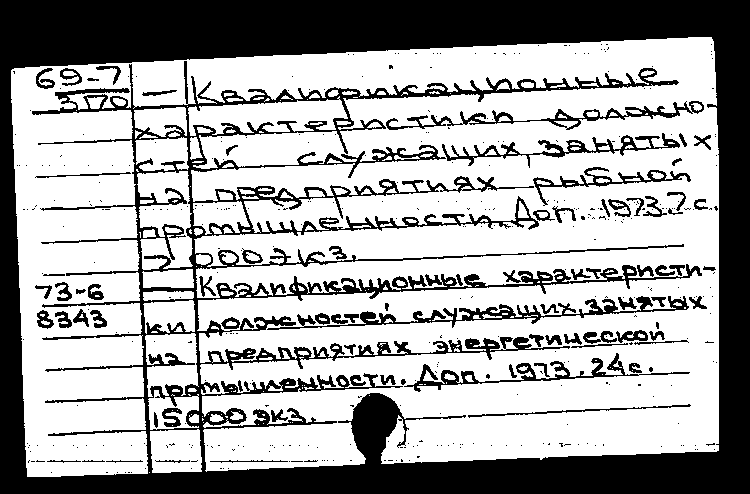 69-7 — Квалификационные
3170
характеристики должно-
стей служащих, занятых
на предприятиях рыбной
промышленности. Доп. 1973. 7 с.
000 экз.
73-6 — Квалификационные характеристи-
8343 ки должностей служащих, занятых
на предприятиях энергетической
промышленности. Доп. 1973. 24 с.
15000 экз.